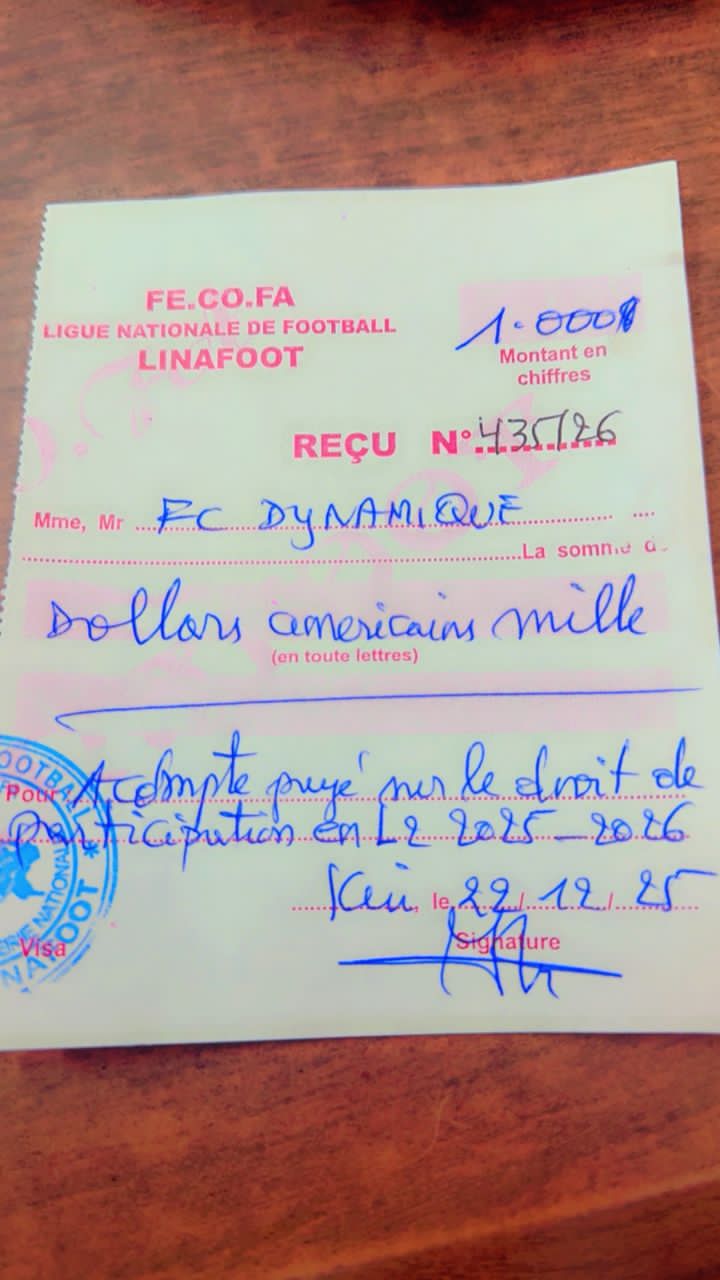 FE.CO.FA
LIGUE NATIONALE DE FOOTBALL
LINAFOOT
1.000$
Montant en
chiffres
REÇU N° 435/26
Mme, Mr FC DYNAMIQUE
La somme d
Dollars americains mille
(en toute lettres)
Pour Acompte payé sur le droit de
participation en L2 2025-2026
Kin, le 22/12/25
Signature
Visa
FOOTBALL
NATIONAL
LINAFOOT *